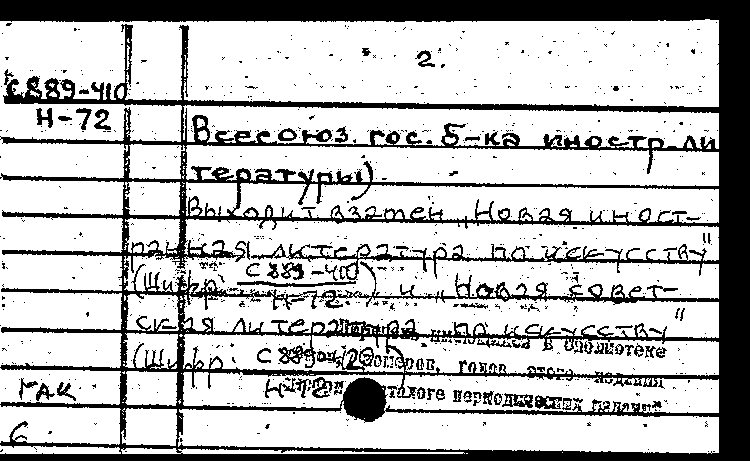 2.
С889-410
Н-72
Всесоюз. гос. б-ка иностр. ли
тературы).
Выходит взамен „Новая иност-
ранная литература по искусству"
(Шифр: С889-410
Н-72) и „Новая совет-
ская литература по искусству"
имеющихся в библиотеке
(Шифр: С889
номеров, годов этого издания
Н-72
каталоге периодических изданий
ГАК
6